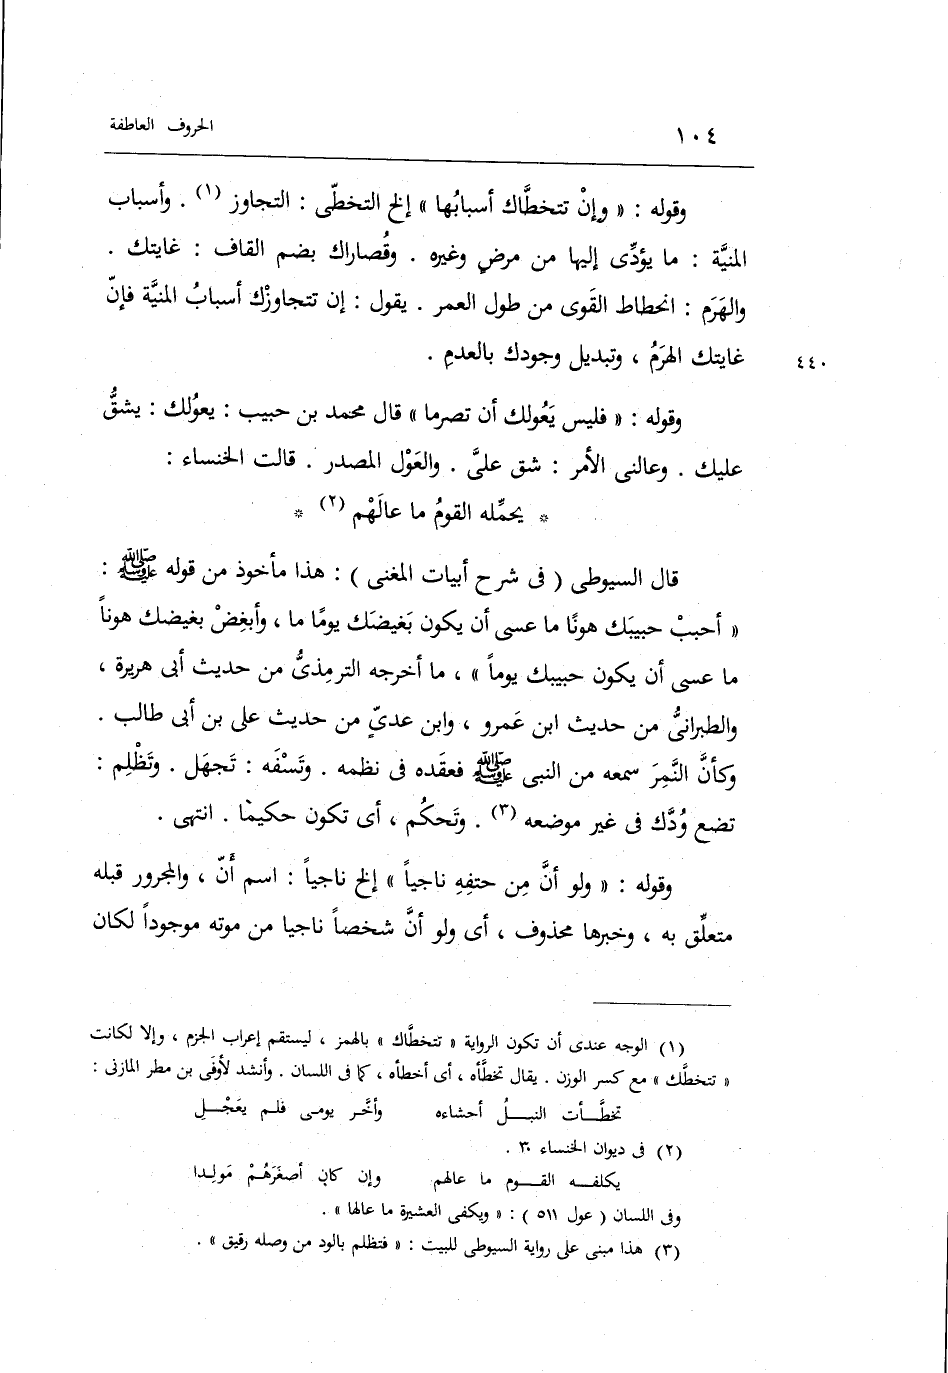 ١٠٤
الحروف العاطفة
وقوله : « وإنْ تتخطَّاك أسبابُها » إلخ التخطّى : التجاوز (١) . وأسباب
المنيَّة : ما يؤدِّى إليها من مرضٍ وغيره . وقُصاراك بضم القاف : غايتك .
والهَرَم : انحطاط القَوى من طول العمر . يقول : إن تتجاوزْك أسبابُ المنيَّة فإنّ
غايتك الهرَمُ ، وتبديل وجودك بالعدمِ .
٤٤٠
وقوله : « فليس يَعُولك أن تصرما » قال محمد بن حبيب : يعوُلك : يشقُّ
عليك . وعالنى الأمر : شق علىَّ . والعَوْل المصدر . قالت الخنساء :
* يحمِّله القومُ ما عالَهْم (٢) *
قال السيوطى ( فى شرح أبيات المغنى ) : هذا مأخوذ من قوله ﷺ :
« أحببْ حبيبَك هونًا ما عسى أن يكون بَغيضَك يومًا ما ، وأبغِضْ بغيضك هوناً
ما عسى أن يكون حبيبك يوماً » ، ما أخرجه الترمِذىُّ من حديث أبى هريرة ،
والطبرانىُّ من حديث ابن عَمرو ، وابن عدىّ من حديث على بن أبى طالب .
وكأنَّ النَّمِرَ سمعه من النبى ﷺ فعقَده فى نظمه . وتَسْفَه : تَجهَل . وتَظْلِم :
تضع وُدَّك فى غير موضعه (٣) . وتَحكُم ، أى تكون حكيمًا . انتهى .
وقوله : « ولو أنَّ مِن حتفِهِ ناجياً » إلخ ناجياً : اسم أَنّ ، والمجرور قبله
متعلِّق به ، وخبرها محذوف ، أى ولو أنَّ شخصاً ناجيا من موته موجوداً لكان
(١) الوجه عندى أن تكون الرواية « تتخطَّاك » بالهمز ، ليستقم إعراب الجزم ، وإلا لكانت
« تتخطَّك » مع كسر الوزن . يقال تخطَّأه ، أى أخطأه ، كما فى اللسان . وأنشد لأوفَى بن مطر المازنى :
تخطَّـأت النبـلُ أحشاءه وأخَّـر يومـى فلـم يعَجْـلِ
(٢) فى ديوان الخنساء ٣٠ .
يكلفـه القـوم ما عالهم وإن كان أصغَرَهُـمْ مَولِـدا
وفى اللسان ( عول ٥١١ ) : « ويكفى العشيرة ما عالها » .
(٣) هذا مبنى على رواية السيوطى للبيت : « فتظلم بالود من وصله رقيق » .